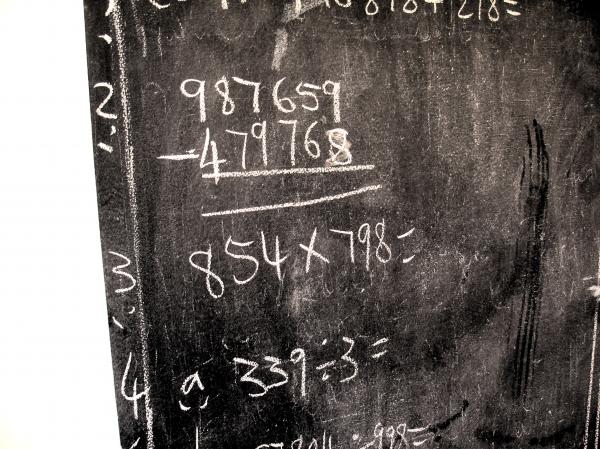 818+218=
2 987659
- 479768
3 854×798=
4 a 339÷3=
÷998=